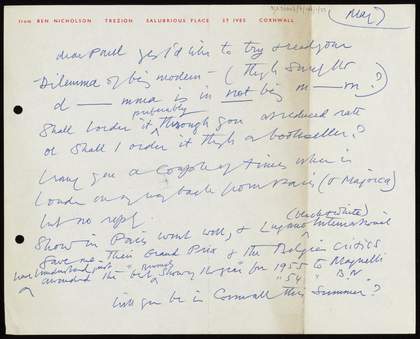 (May)
from BEN NICHOLSON TREZION SALUBRIOUS PLACE ST IVES CORNWALL
dear Paul yes I'd like to try & read your
Dilemma of being modern – (tho' surely the
d——mma is in not being m——n?)
Shall I order it preferably through you at reduced rate
or shall I order it thro' a bookseller?
I rang you a couple of times when in
London on my way back from Paris (& Majorca)
but no reply.
Show in Paris went well, & Lugano International (black & white)
gave me their Grand Prix & the Belgian Critics
have awarded the best Show of the year for 1955 to Magnelli
" 54 " B.N
Will you be in Cornwall this summer?